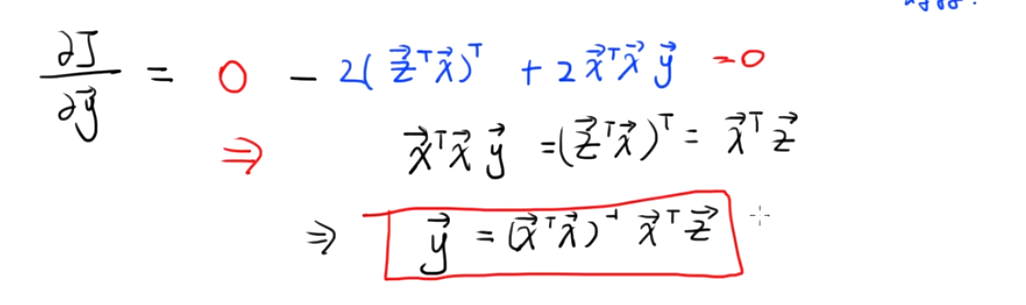 ∂J/∂y⃗ = 0 − 2(z⃗ᵀx⃗)ᵀ + 2x⃗ᵀx⃗ y⃗ = 0
⇒ x⃗ᵀx⃗ y⃗ = (z⃗ᵀx⃗)ᵀ = x⃗ᵀz⃗
⇒ y⃗ = (x⃗ᵀx⃗)⁻¹ x⃗ᵀz⃗